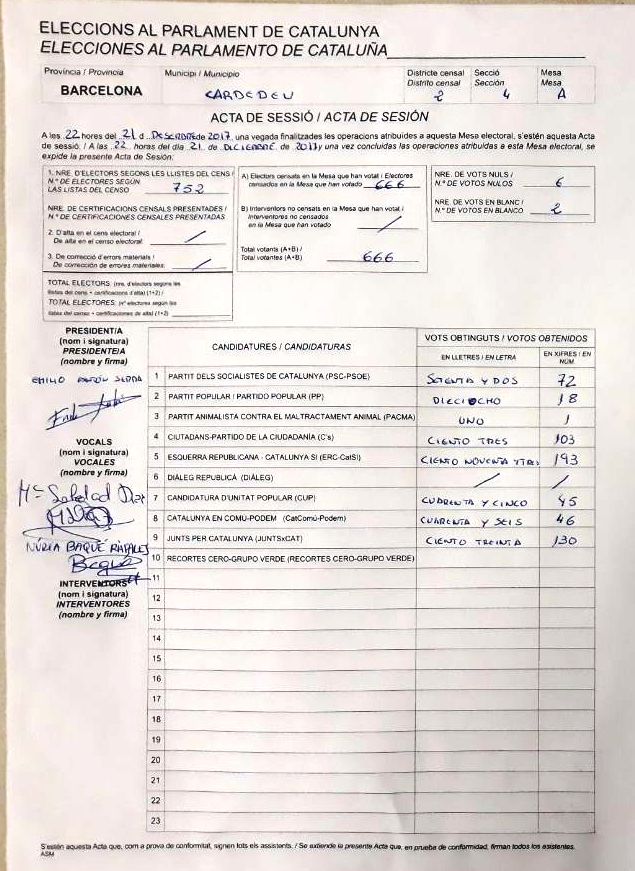 ELECCIONS AL PARLAMENT DE CATALUNYA
ELECCIONES AL PARLAMENTO DE CATALUÑA
Província / Provincia
BARCELONA
Municipi / Municipio
CARDEDEU
Districte censal
Distrito censal
2
Secció
Sección
4
Mesa
Mesa
A
ACTA DE SESSIÓ / ACTA DE SESIÓN
A les 22 hores del 21 d de 2017, una vegada finalitzades les operacions atribuïdes a aquesta Mesa electoral, s'estén aquesta Acta
de sessió. / A las 22 horas del día 21 de DICIEMBRE de 2017, una vez concluidas las operaciones atribuidas a esta Mesa electoral, se
expide la presente Acta de Sesión:
1. NRE. D'ELECTORS SEGONS LES LLISTES DEL CENS /
N.º DE ELECTORES SEGÚN
LAS LISTAS DEL CENSO 752
NRE. DE CERTIFICACIONS CENSALS PRESENTADES /
N.º DE CERTIFICACIONES CENSALES PRESENTADAS
2. D'alta en el cens electoral /
De alta en el censo electoral: /
3. De correcció d'errors materials /
De corrección de errores materiales: /
TOTAL ELECTORS (nre. d'electors segons les
llistes del cens + certificacions d'alta) (1+2) /
TOTAL ELECTORES (nº electores según las
listas del censo + certificaciones de alta) (1+2)
A) Electors censats en la Mesa que han votat / Electores
censados en la Mesa que han votado 666
B) Interventors no censats en la Mesa que han votat /
Interventores no censados
en la Mesa que han votado /
Total votants (A+B) /
Total votantes (A+B) 666
NRE. DE VOTS NULS /
N.º DE VOTOS NULOS 6
NRE. DE VOTS EN BLANC /
N.º DE VOTOS EN BLANCO 2
PRESIDENT/A
(nom i signatura)
PRESIDENTE/A
(nombre y firma)
EMILIO
VOCALS
(nom i signatura)
VOCALES
(nombre y firma)
Mª Soledad
NÚRIA BAQUÉ RÀFALES
Baqué
INTERVENTORS
(nom i signatura)
INTERVENTORES
(nombre y firma)
CANDIDATURES / CANDIDATURAS
VOTS OBTINGUTS / VOTOS OBTENIDOS
EN LLETRES / EN LETRA
EN XIFRES / EN NÚM.
1 PARTIT DELS SOCIALISTES DE CATALUNYA (PSC-PSOE) SETENTA Y DOS 72
2 PARTIT POPULAR / PARTIDO POPULAR (PP) DIECIOCHO 18
3 PARTIT ANIMALISTA CONTRA EL MALTRACTAMENT ANIMAL (PACMA) UNO 1
4 CIUTADANS-PARTIDO DE LA CIUDADANÍA (C's) CIENTO TRES 103
5 ESQUERRA REPUBLICANA - CATALUNYA SÍ (ERC-CatSí) CIENTO NOVENTA Y TRES 193
6 DIÀLEG REPUBLICÀ (DIÀLEG) / /
7 CANDIDATURA D'UNITAT POPULAR (CUP) CUARENTA Y CINCO 45
8 CATALUNYA EN COMÚ-PODEM (CatComú-Podem) CUARENTA Y SEIS 46
9 JUNTS PER CATALUNYA (JUNTSxCAT) CIENTO TREINTA 130
10 RECORTES CERO-GRUPO VERDE (RECORTES CERO-GRUPO VERDE)
11
12
13
14
15
16
17
18
19
20
21
22
23
S'estén aquesta Acta que, com a prova de conformitat, signen tots els assistents. / Se extiende la presente Acta que, en prueba de conformidad, firman todos los asistentes.
ASM